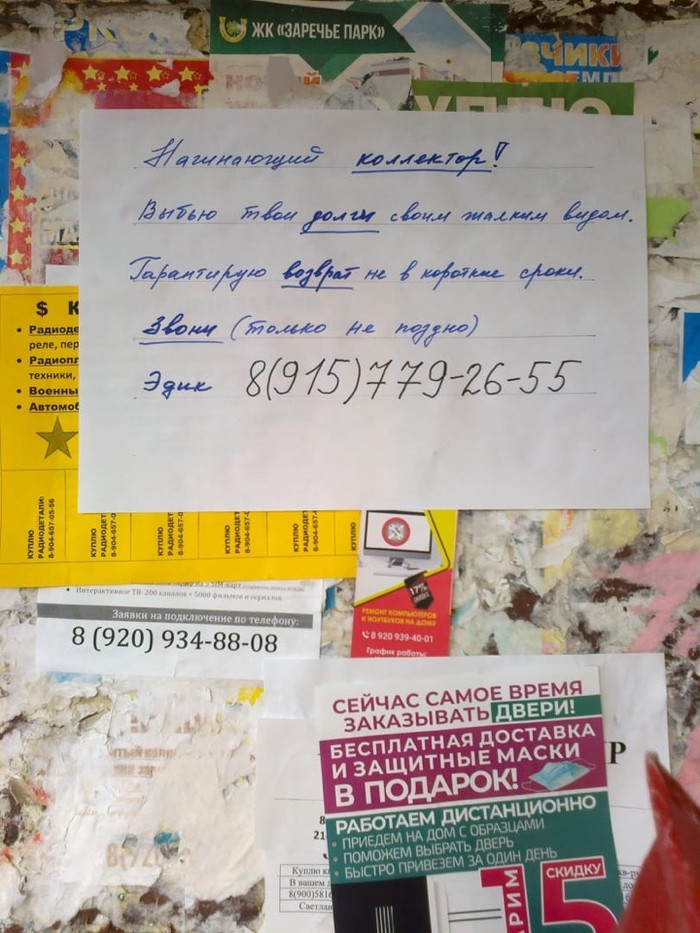 ЖК «ЗАРЕЧЬЕ ПАРК»
Начинающий коллектор!
Выбью твои долги своим жалким видом.
Гарантирую возврат не в короткие сроки.
Звони (только не поздно)
Эдик 8(915)779-26-55
$ К
• Радиоде
реле, пер
• Радиопл
техники,
• Военны
• Автомоб
КУПЛЮ
РАДИОДЕТАЛИ:
8-904-657-05-56
• Интерактивное ТВ 200 каналов + 5000 фильмов и сериалов
Заявки на подключение по телефону:
8 (920) 934-88-08
РЕМОНТ КОМПЬЮТЕРОВ
И НОУТБУКОВ НА ДОМУ
8 920 939-40-01
График работы:
СЕЙЧАС САМОЕ ВРЕМЯ
ЗАКАЗЫВАТЬ ДВЕРИ!
БЕСПЛАТНАЯ ДОСТАВКА
И ЗАЩИТНЫЕ МАСКИ
В ПОДАРОК!
РАБОТАЕМ ДИСТАНЦИОННО
• ПРИЕДЕМ НА ДОМ С ОБРАЗЦАМИ
• ПОМОЖЕМ ВЫБРАТЬ ДВЕРЬ
• БЫСТРО ПРИВЕЗЕМ ЗА ОДИН ДЕНЬ
СКИДКУ
15
Куплю
В вашем
8(900)5816
Светлан